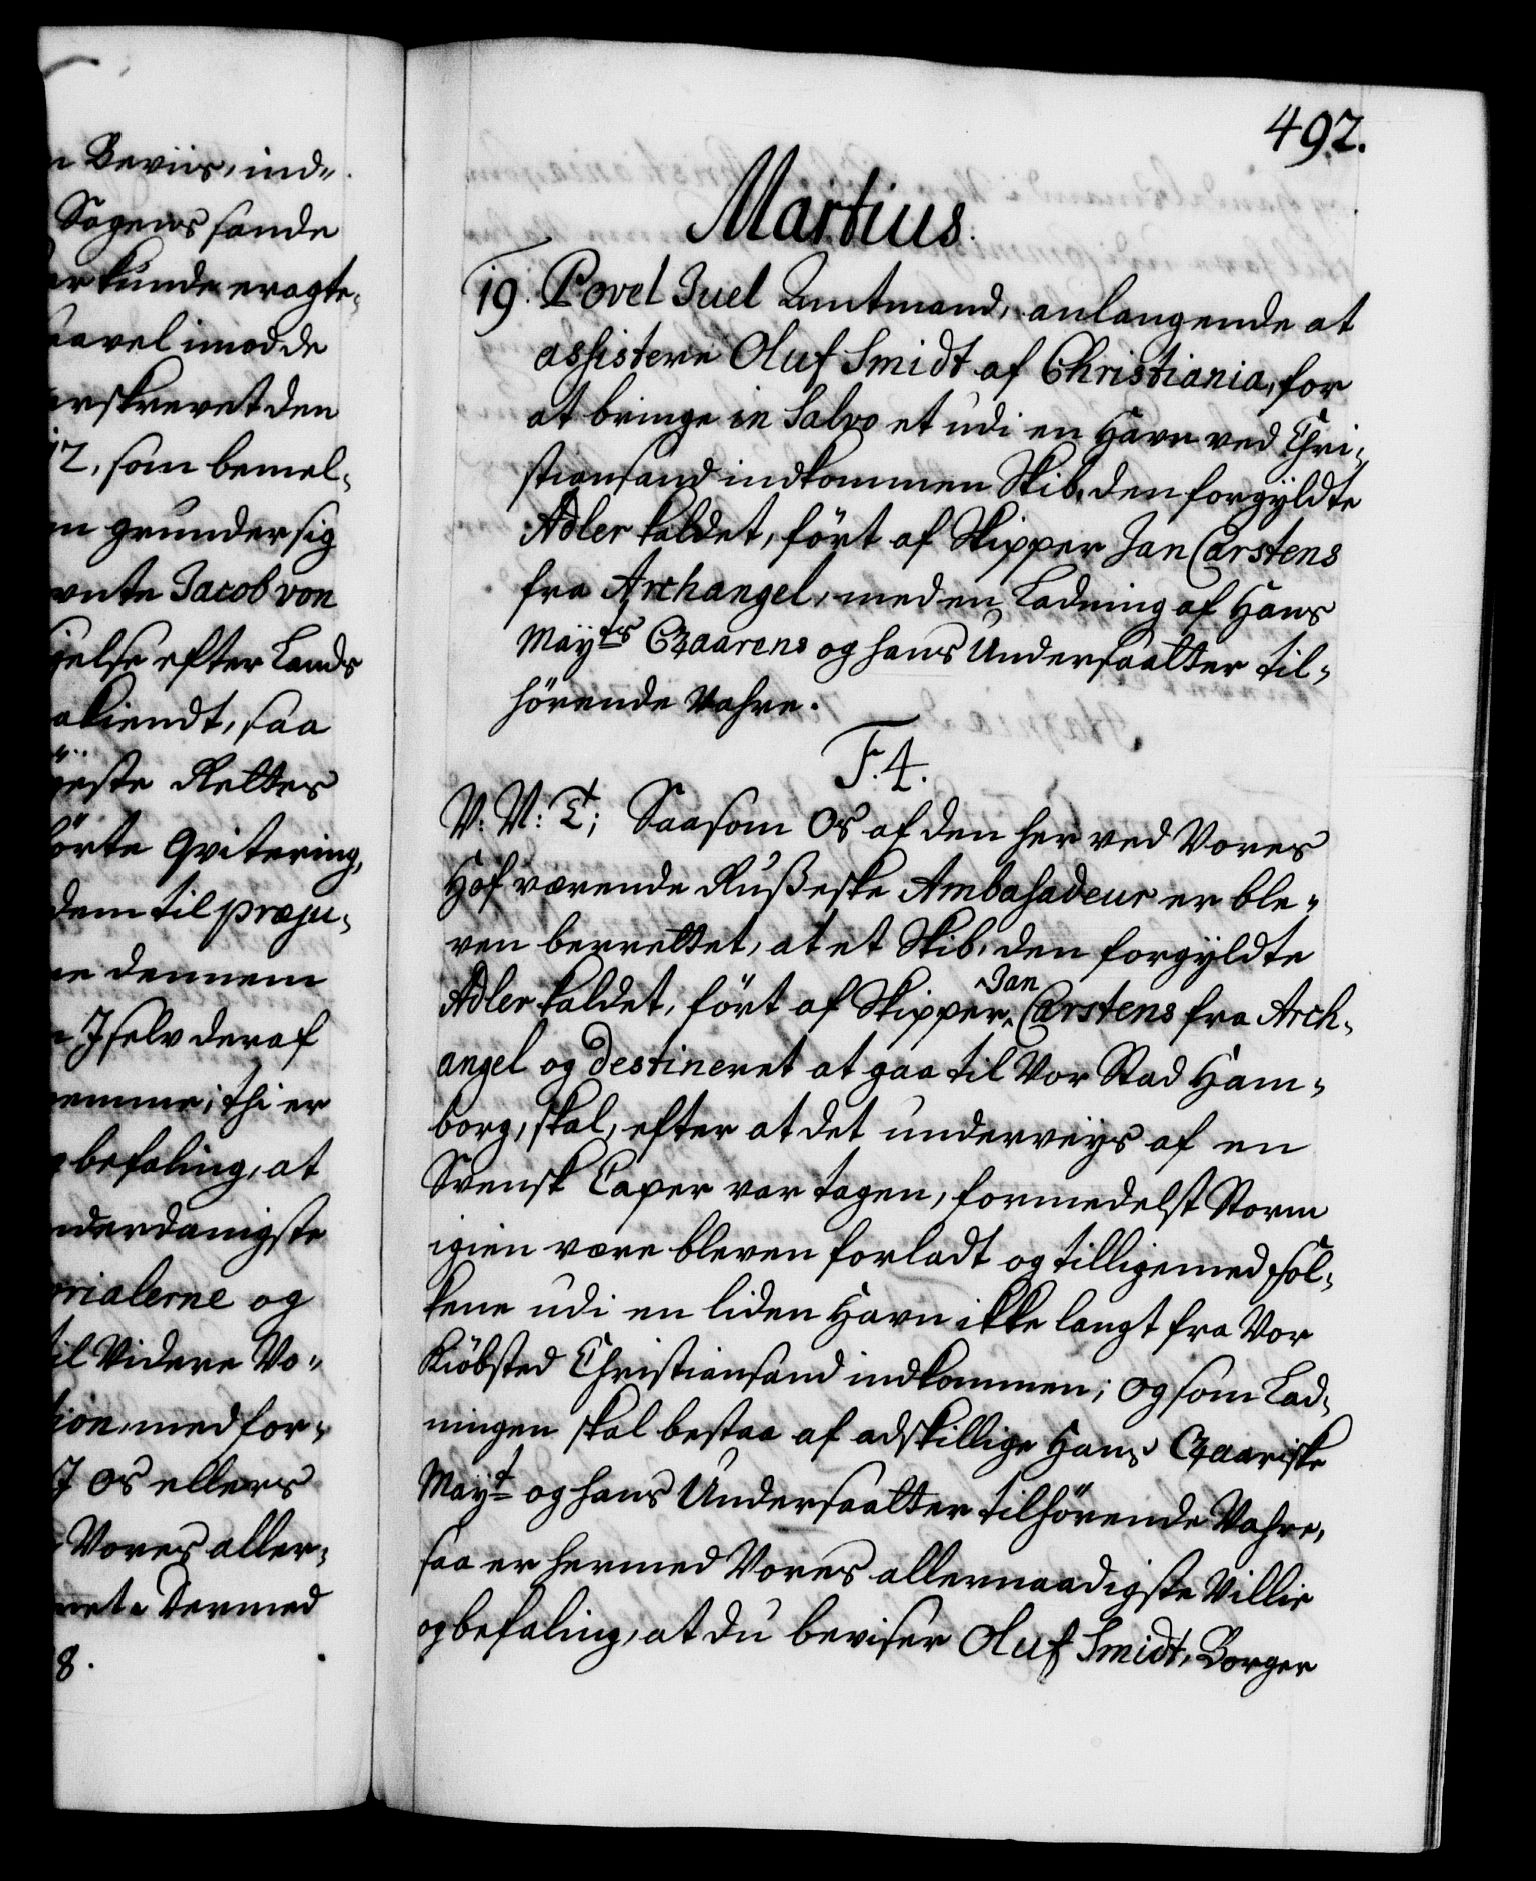 n Beviis, ind-
Sagens sande
er kunde eragte,
saavel imod de
erskrevet den
12, som bemel,
en grunder sig
vnte Jacob von
jelse efter Lands
akiendt, saa
øyeste Rettes
førte Qvitering,
dem til præju,
ne dennem
I selv deraf
emme; thi er
befaling, at
nderdanigste
rialerne og
til Videre Vo-
tion, med for-
I os ellers
Vores aller-
net. Dermed
8.
492.
Martius.
19. Povel Juel Amtmand, anlangende at
assistere Oluf Smidt af Christiania, for
at bringe in Salvo et udi en Havn ved Chri,
stiansand indkommen Skib, den forgyldte
Adler kaldet, ført af Skipper Jan Carstens
fra Archangel, med en Ladning af Hans
Mayts Czaarens og hans Undersaatter til-
hörende Vahre.
F. 4.
V: V: T; Saasom Os af den her ved Vores
Hof værende Rußeske Ambassadeur er ble-
ven berettet, at et Skib, den forgyldte
Adler kaldet, fört af Skipper Jan Carstens fra Arch-
angel og destineret at gaa til Vor Stad Ham-
borg, skal, efter at det underveys af en
Svensk Caper var tagen, formedelst Storm
igien være bleven forladt og tilligemed Fol-
kene udi en liden Havn ikke langt fra Vor
Kiöbsted Christiansand indkommen; og som Lad-
ningen skal bestaa af adskillige Hans Czaariske
Mayt og hans Undersaatter tilhörende Vahre,
saa er hermed Vores allernaadigste Villie
og befaling, at du beviser Oluf Smidt, Borger